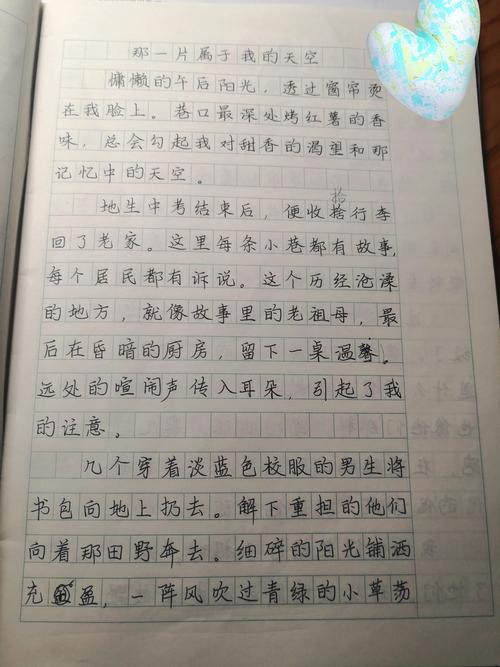 那一片属于我的天空
慵懒的午后阳光，透过窗帘烫
在我脸上。巷口最深处烤红薯的香
味，总会勾起我对甜香的渴望和那
记忆中的天空。
拾
地生中考结束后，便收捨行李
回了老家。这里每条小巷都有故事，
每个居民都有诉说。这个历经沧溸
的地方，就像故事里的老祖母，最
后在昏暗的厨房，留下一桌温馨。
远处的喧闹声传入耳朵，引起了我
的注意。
几个穿着淡蓝色校服的男生将
书包向地上扔去。解下重担的他们
向着那田野奔去。细碎的阳光铺洒
充盈，一阵风吹过青绿的小草荡